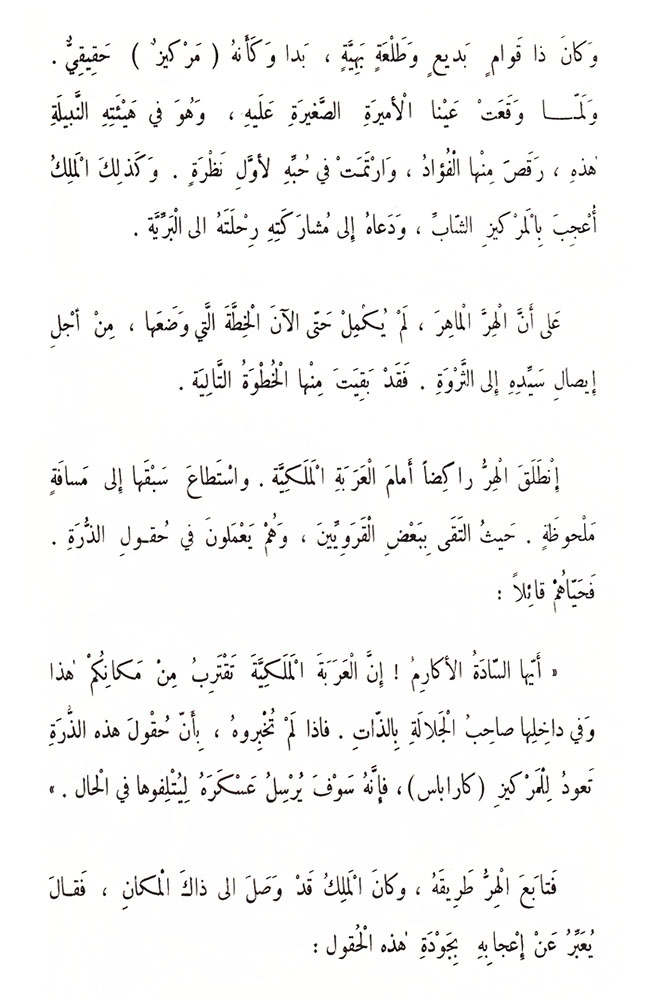 وَكانَ ذا قَوامٍ بَديعٍ وَطَلْعَةٍ بَهِيَّةٍ ، بَدا وَكَأَنهُ ( مَرْكيزٌ ) حَقِيقِيٌّ .
وَلَمّـــا وَقَعَتْ عَيْنا الْأميرَةِ الصَّغيرَةِ عَلَيهِ ، وَهُوَ في هَيْئَتِهِ النَّبيلَةِ
هٰذهِ ، رَقَصَ مِنْها الْفُؤادُ ، وَارْتَمَتْ في حُبِّهِ لأوَّلِ نَظْرَةٍ . وَكَذلِكَ الْمَلِكُ
أُعْجِبَ بِالْمَرْكيزِ الشّابِّ ، وَدَعاهُ إلى مُشارَكَتِهِ رِحْلَتَهُ الى الْبَرِّيَّة .
عَلى أَنَّ الْهِرَّ الْماهِرَ ، لَمْ يُكْمِلْ حَتّى الآنَ الْخِطَّةَ الَّتي وَضَعَها ، مِنْ أجْلِ
إيصالِ سَيِّدِهِ إلى الثَّرْوَةِ . فَقَدْ بَقِيَتَ مِنْها الْخُطْوَةُ التّالِيَة .
إنْطَلَقَ الْهِرُّ راكِضاً أمامَ الْعَرَبَةِ الْمَلَكِيَّة . واسْتَطاعَ سَبْقَها إلى مَسافَةٍ
مَلْحوظَةٍ . حَيثُ التَقَى بِبَعْضِ الْقَرَوِيِّينَ ، وَهُمْ يَعْمَلونَ في حُقـولِ الذُّرَةِ .
فَحَيّاهُمْ قائِلاً :
« أَيّها السّادَةُ الأكارِمُ ! إنَّ الْعَرَبَةَ الْمَلَكِيَّةَ تَقْتَرِبُ مِنْ مَكانِكُمْ هٰذا
وَفي داخِلِها صاحِبُ الْجَلالَةِ بِالذّاتِ . فاذا لَمْ تُخْبِروهُ ، بِأنّ حُقْولَ هذه الذُّرَةِ
تَعودُ لِلْمَرْكيزِ (كاراباس) ، فإنَّهُ سَوْفَ يُرْسِلُ عَسْكَرَهُ لِيُتْلِفوها في الْحال . »
فَتابَعَ الْهِرُّ طَرِيقَهُ ، وكانَ الْمَلِكُ قَدْ وَصَلَ الى ذاكَ الْمَكانِ ، فَقـالَ
يُعَبِّرُ عَنْ إعْجابِهِ بِجَوْدَةِ هٰذه الْحُقول :